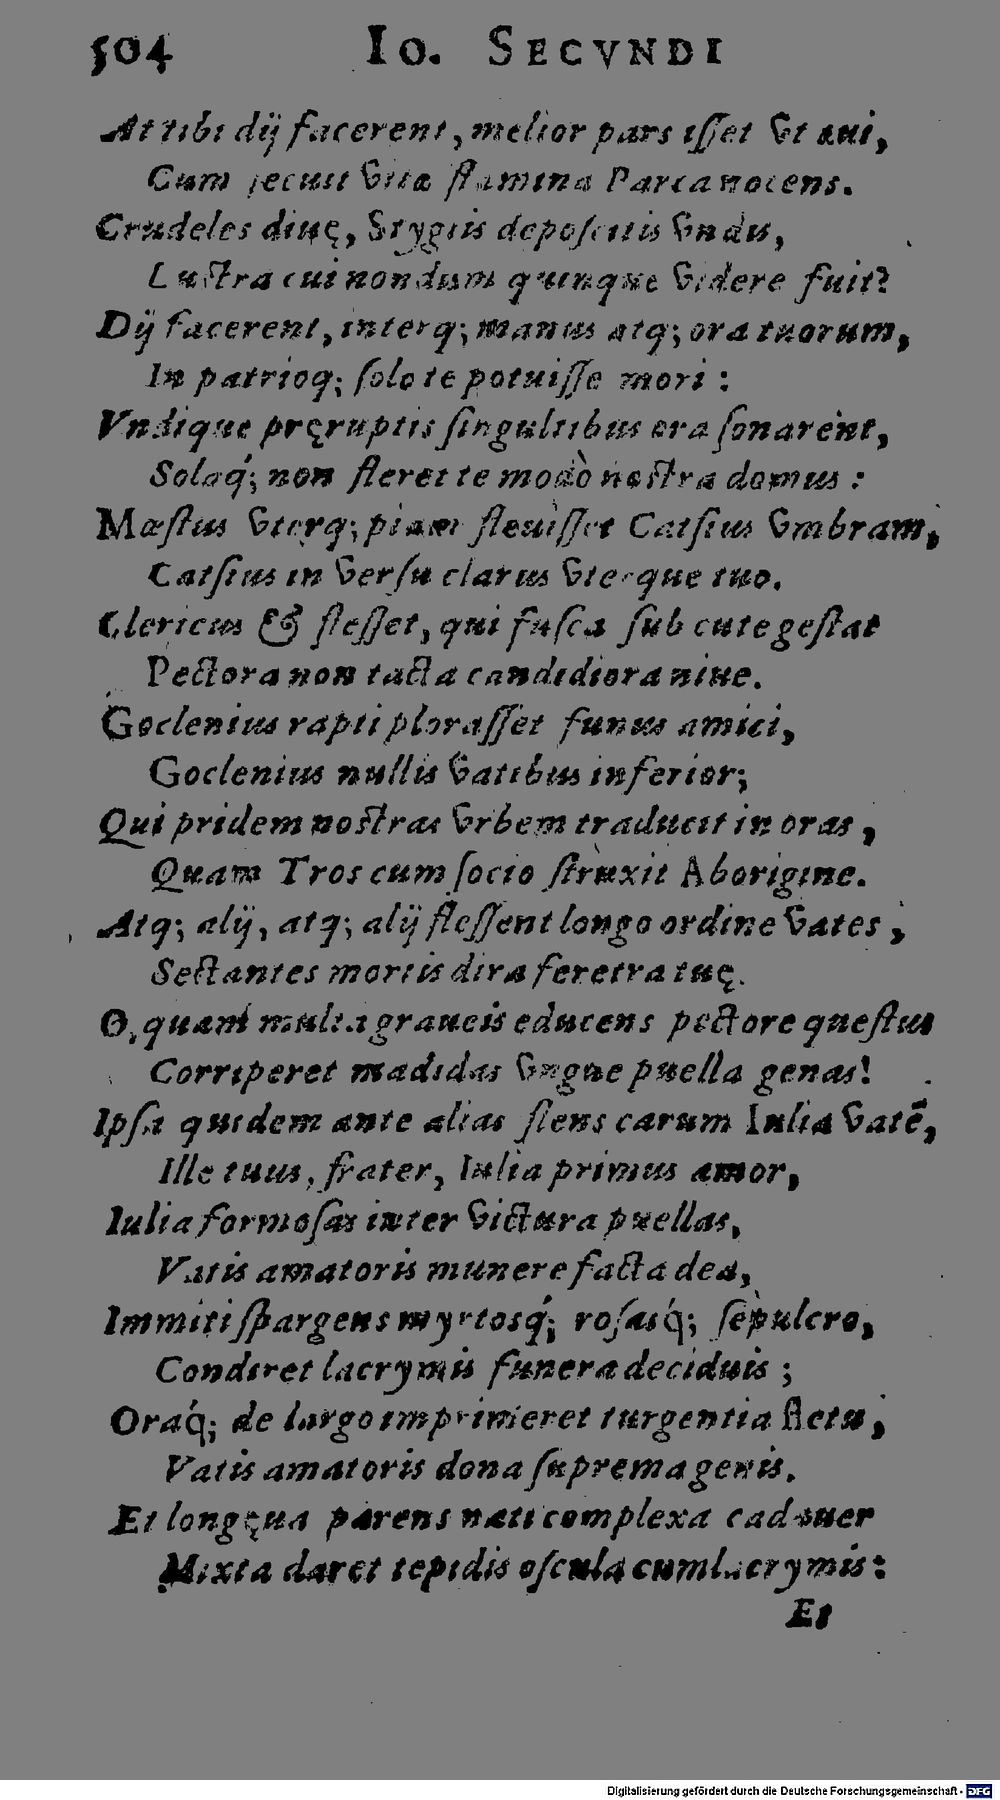 504 IO. SECVNDI
At tibi dij facerent, melior pars isset vt aui,
Cum secuit vitæ stamina Parca nocens.
Crudeles diuę, Stygiis deposcitis vndis,
Lustra cui nondum quinque videre fuit?
Dij facerent, interq; manus atq; ora tuorum,
In patrioq; solo te potuisse mori :
Vndique pręruptis singultibus ora sonarent,
Solaq́; non fleret te modò nostra domus :
Mæstus vterq; piam fleuisset Catsius vmbram,
Catsius in versu clarus vterque tuo.
Clericus & flesset, qui fusca sub cute gestat
Pectora non tacta candidiora niue.
Goclenius rapti plorasset funus amici,
Goclenius nullis vatibus inferior;
Qui pridem nostras vrbem traducit in oras,
Quam Tros cum socio struxit Aborigine.
Atq; alij, atq; alij flessent longo ordine vates,
Sectantes mortis dira feretra tuę.
O, quam multa graueis educens pectore questus
Corriperet madidas vngue puella genas!
Ipsa quidem ante alias flens carum Iulia vatē,
Ille tuus, frater, Iulia primus amor,
Iulia formosas inter victura puellas,
Vatis amatoris munere facta dea,
Immiti spargens myrtosq́; rosasq́; sepulcro,
Conderet lacrymis funera deciduis ;
Oraq́; de largo imprimeret turgentia fletu,
Vatis amatoris dona suprema genis.
Et longęua parens nati complexa cadauer
Mixta daret tepidis oscula cum lacrymis:
Et
Digitalisierung gefördert durch die Deutsche Forschungsgemeinschaft - DFG